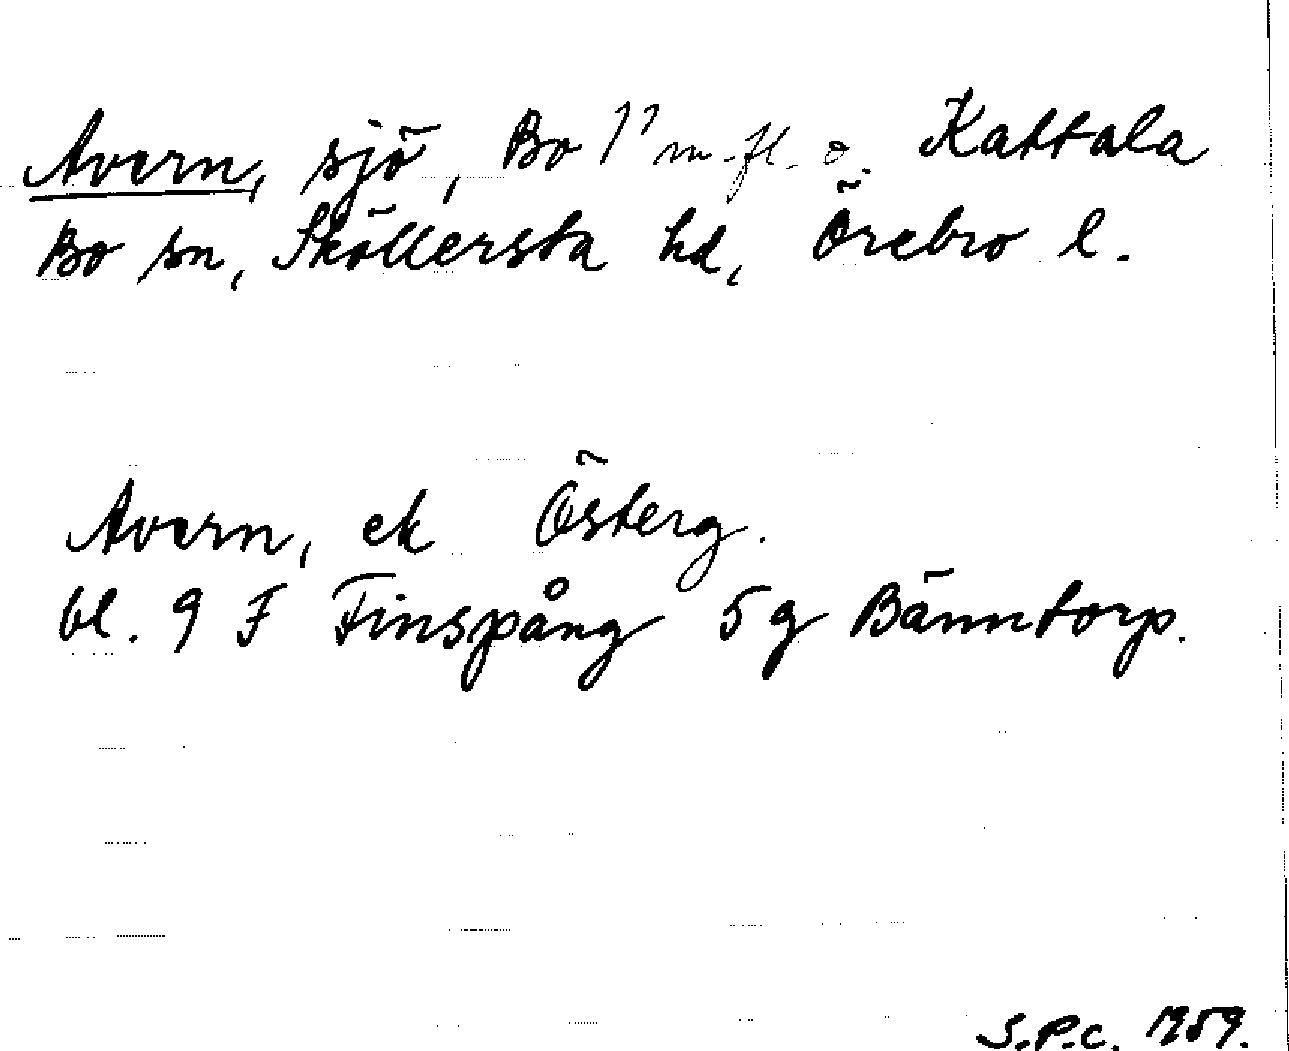 Avern, sjö, Bo 1¹ m. fl. o. Kattala
Bo sn, Sköllersta hd, Örebro l.
Avern, ek Österg.
bl. 9 F Finspång 5 g Bänntorp.
S.P.C. 1959.